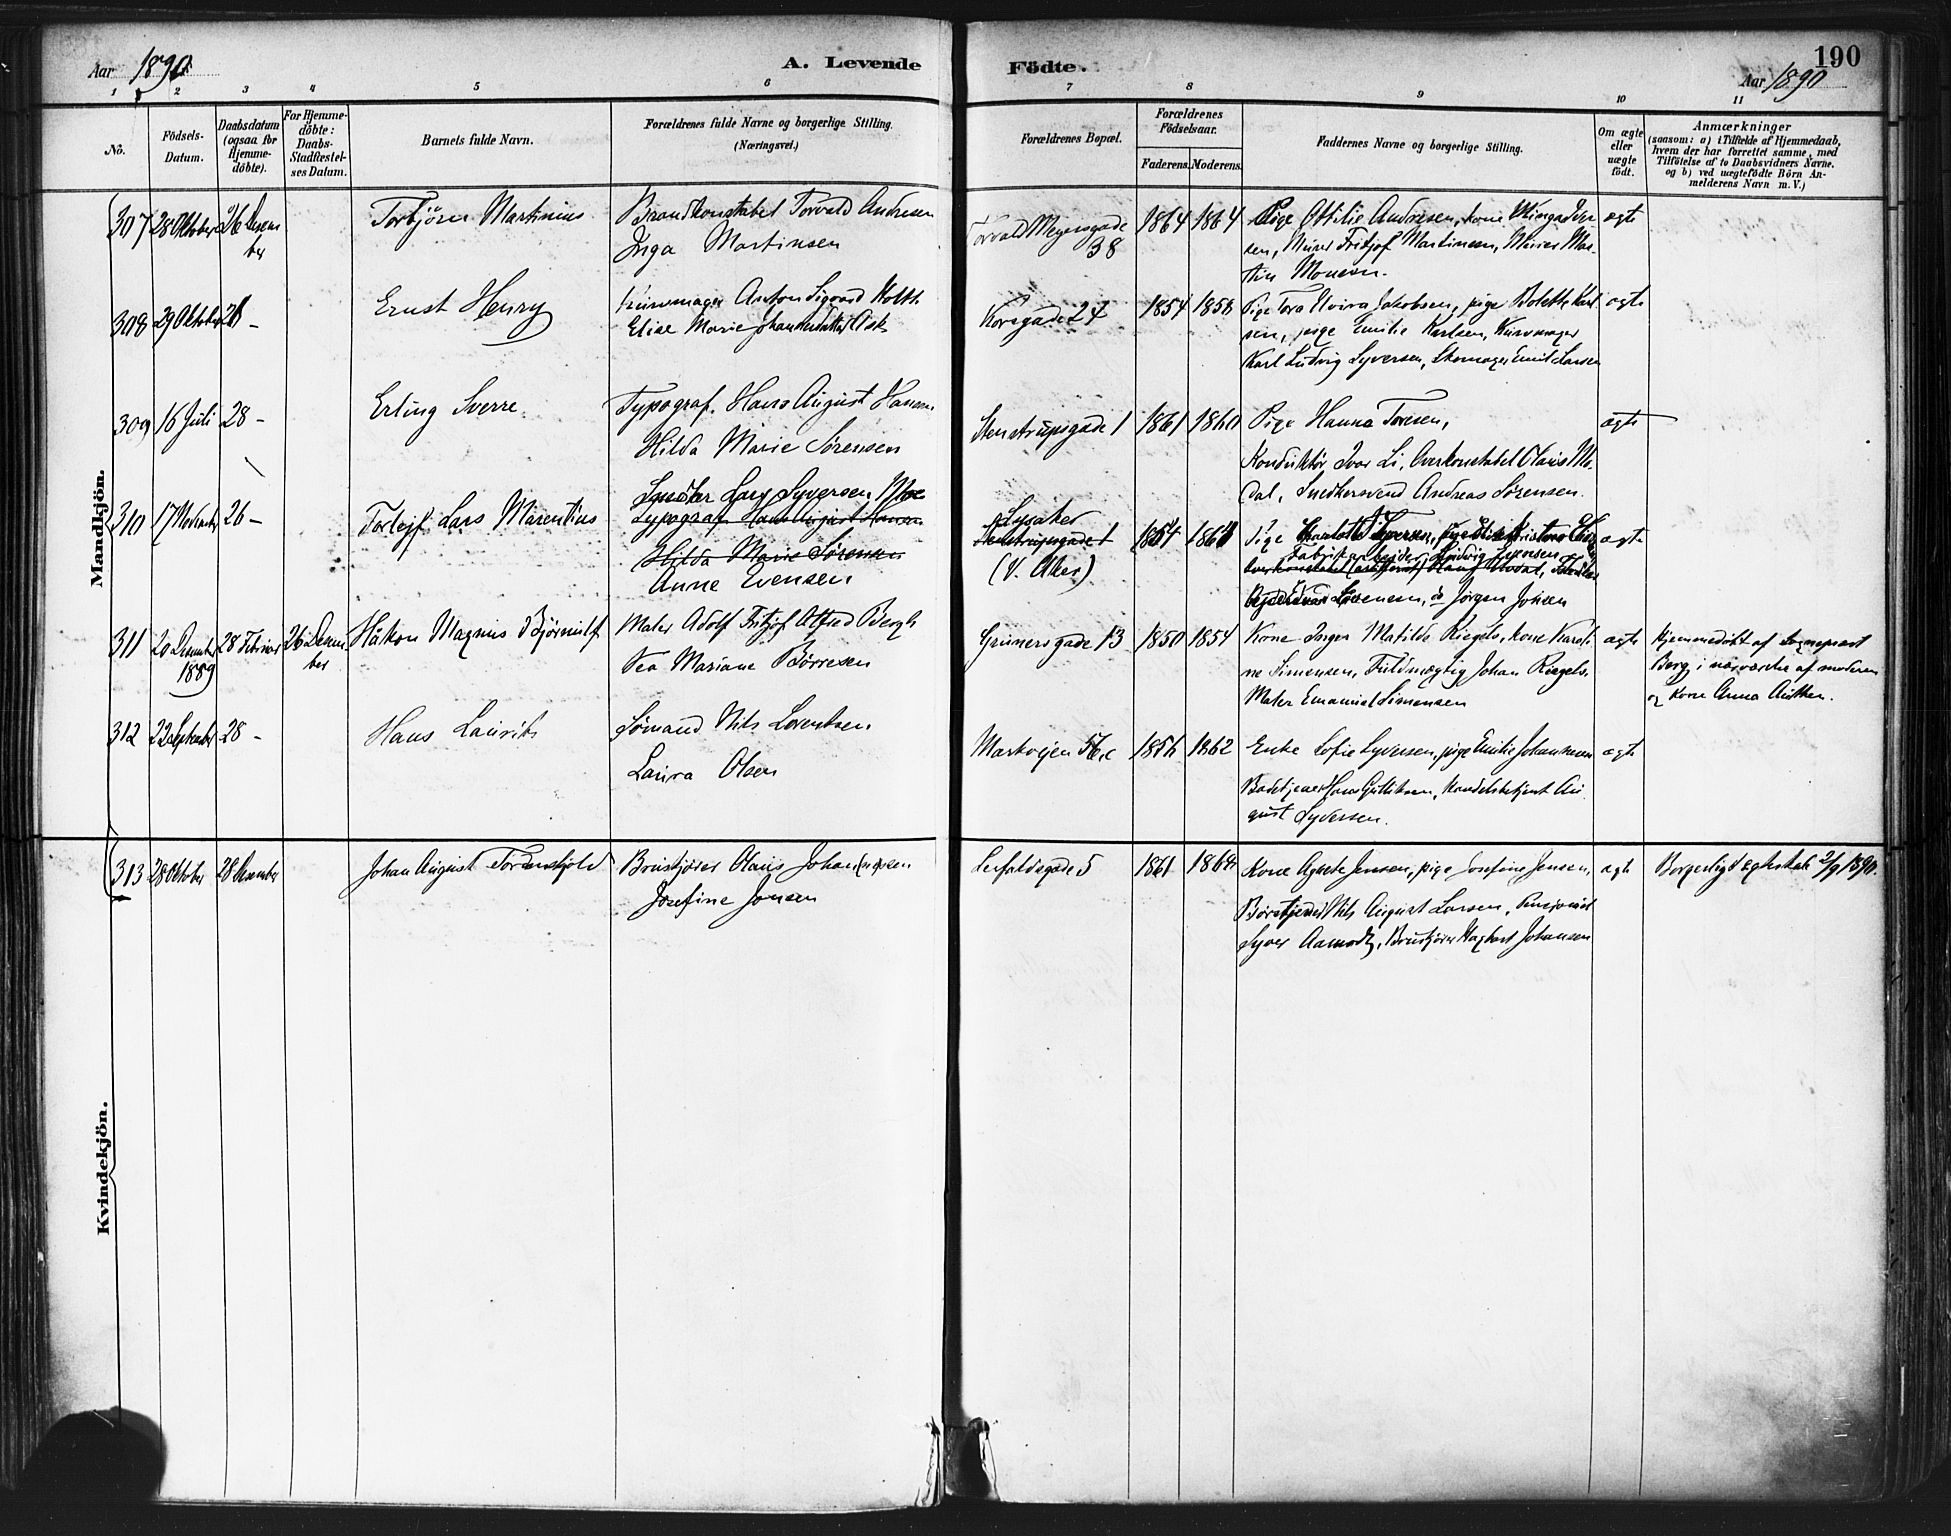 Aar 1890
A. Levende
Födte.
190
Aar 1890
1 2 3 4 5 6 7 8 9 10 11
No.
Födsels-
Datum.
Daabsdatum
(ogsaa for
Hjemme-
döbte).
For Hjemme-
döbte:
Daabs-
Stadfæstel-
ses Datum.
Barnets fulde Navn.
Forældrenes fulde Navne og borgerlige Stilling.
(Næringsvei.)
Forældrenes Bopæl.
Forældrenes
Födselsaar.
Faderens. Moderens.
Faddernes Navne og borgerlige Stilling.
Om ægte
eller
uægte
födt.
Anmærkninger
(saasom: a) i Tilfælde af Hjemmedaab,
hvem der har forrettet samme, med
Tilföielse af to Daabsvidners Navne,
og b) ved uægtefödte Börn An-
melderens Navn m. V.)
Mandkjön.
307 28 Oktober 26 Desem
ber
Torbjörn Martinius
Brandkonstabel Torvald Andresen
Inga Martinsen
Torvald Meyersgade
38
1864 1864
Pige Ottilie Andresen, kone
sen, Murer Fritjof Martinsen, Murer Mar-
tin Monsen.
ægte
308 29 Oktober 26 –
Ernst Henry
Anton Sigvard Holth
Elise Marie Johannesdatter Ask
Korsgade 27
1854 1858
Pige Tora Elvira Jakobsen, pige Bolette Karl
sen, pige Emilie Karlsen,
Karl Ludvig Syversen, Skomager Emil Larsen
ægte
309 16 Juli 28 –
Erling Sverre
Typograf. Hans August Hansen.
Hilda Marie Sørensen
Stenstrupsgade 1
1861 1860
Pige Hanna Toresen,
Konduktör Ivar Li, Overkonstabel Olaus Mo-
dal, Snedkersvend Andreas Sørensen.
ægte
310 17 26 –
Torlejf Lars Marentius
Lars Syversen Moe
Typograf Hans August Hansen
Hilda Marie Sørensen
Anne Evensen
Lysaker
Stenstrupsgade 1
(V. Aker)
1864 1861
Pige Syversen,
Fabrikarbeider Ludvig
Sørensen, do Jørgen Johsen
ægte
311 20 Desember
1889
28 Februar 26 Desem
ber
Håkon Magnus Bjørnulf
Maler Adolf Fritjof Alfred Bergh
Tea Mariane Børresen
Grünersgade 13
1850 1854
Kone Inger Matilde Riegels, kone Karoli
ne Simensen, Fuldmægtig Johan Riegels,
Maler Emanuel Simensen
ægte
Hjemmedøbt af Sogneprest
Berg i nærværelse af moderen
og kone Anna
312 22 September 28 –
Hans Laurits
Sömand Nils Lorentsen
Laura Olsen
Markvejen
1856 1862
Enke Sofie Syversen, pige Emilie Johannesen
Badetjener Hans Gulliksen, Handelsbetjent Au-
gust Syversen.
ægte
313 28 Oktober 28 Desember
Johan August Tordenskjold
Bruskjører Olaus Johan(ne)sen
Josefine Jonsen
Leirfaldsgade 5
1861 1868
Kone Agnete Jensen, pige Josefine Jensen,
Nils August Larsen,
Syver Aamodt, Bruskjører Hagbart Johansen
ægte
Borgerligt ægteskab 2/9 1890.
Kvindekjön.